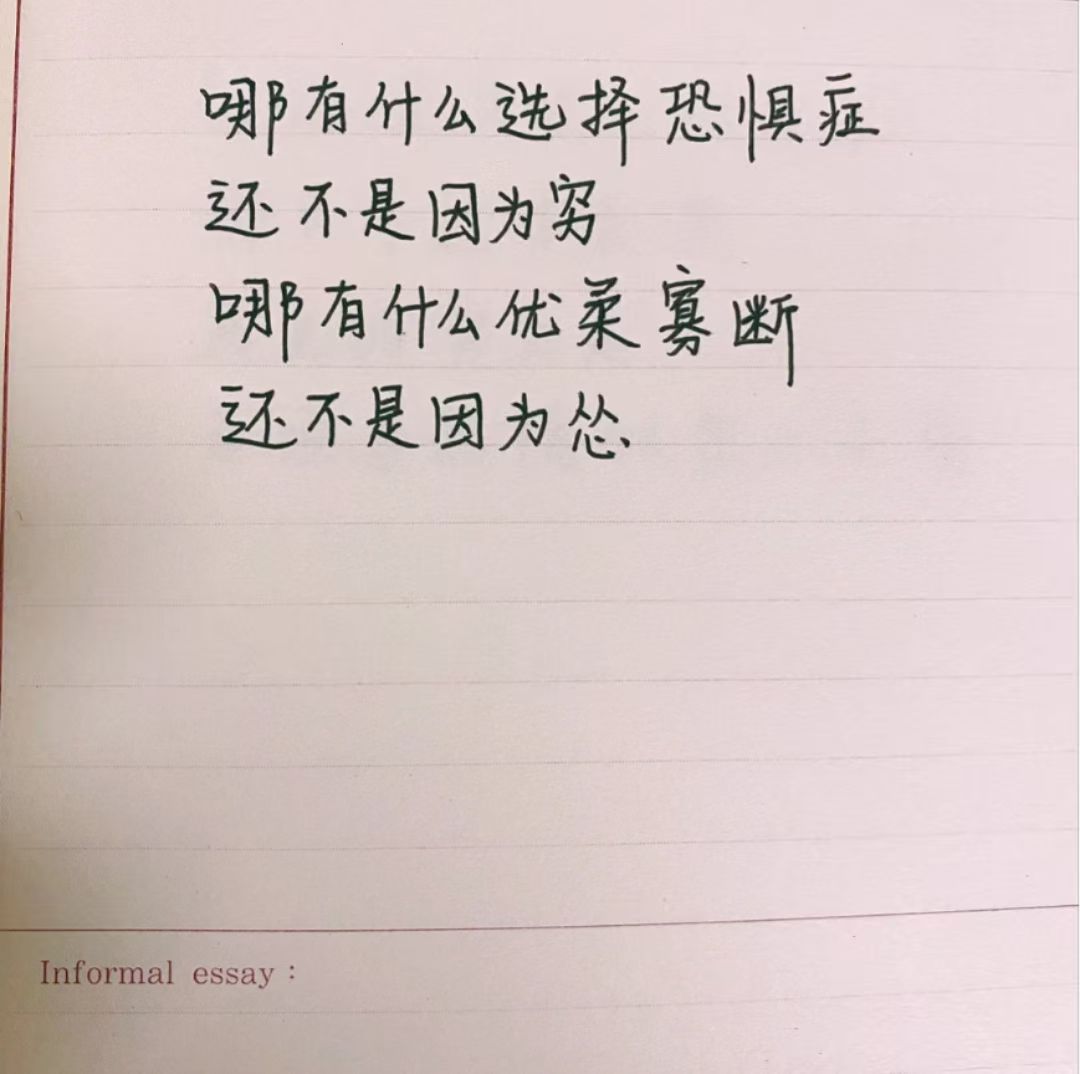 哪有什么选择恐惧症
还不是因为穷
哪有什么优柔寡断
还不是因为怂
Informal essay：